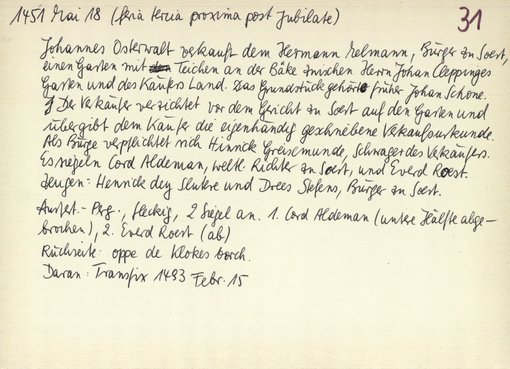 1451 Mai 18 (feria tercia proxima post Jubilate)
31
Johannes Osterwalt verkauft dem Hermann Melmann, Bürger zu Soest,
einen Garten mit Teichen an der Bäke zwischen Herrn Johan Cleppinges
Garten und des Käufers Land. Das Grundstück gehörte früher Johan Schone.
Der Verkäufer verzichtet vor dem Gericht zu Soest auf den Garten und
übergibt dem Käufer die eigenhändig geschriebene Verkaufsurkunde.
Als Bürge verpflichtet sich Hinrick Gresemunde, Schwager des Verkäufers.
Es siegeln Cord Aldeman, weltl. Richter zu Soest, und Everd Roest.
Zeugen: Henrick dey Slutere und Drees Stefens, Bürger zu Soest.
Ausfert.-Prg., fleckig, 2 Siegel an. 1. Cord Aldeman (untere Hälfte abge-
brochen), 2. Everd Roest (ab)
Rückseite: oppe de Klokes borch.
Daran: Transfix 1493 Febr. 15